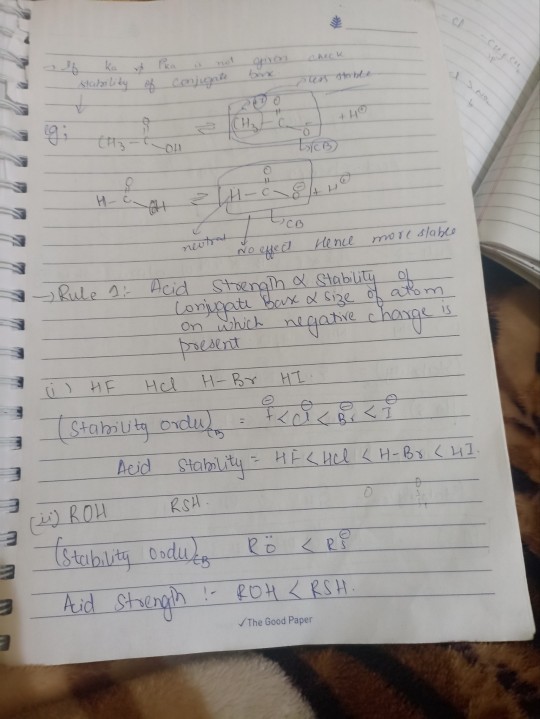 → If Ka or Pka is not given check
stability of conjugate base
less stable
eg; CH3 - C - OH ⇌ CH3 - C - O + H⊕
O O
(CB)
H - C - OH ⇌ H - C - O⊖ + H⊕
O O
CB
neutral No effect Hence more stable
→ Rule 1:- Acid Strength ∝ Stability of
Conjugate Base ∝ size of atom
on which negative charge is
present
(i) HF HCl H-Br HI
(Stability order)CB = F⊖ < Cl⊖ < Br⊖ < I⊖
Acid Stability = HF < HCl < H-Br < HI
(ii) ROH RSH.
(Stability order)CB RO < RS⊖
Acid Strength :- ROH < RSH.
✓The Good Paper